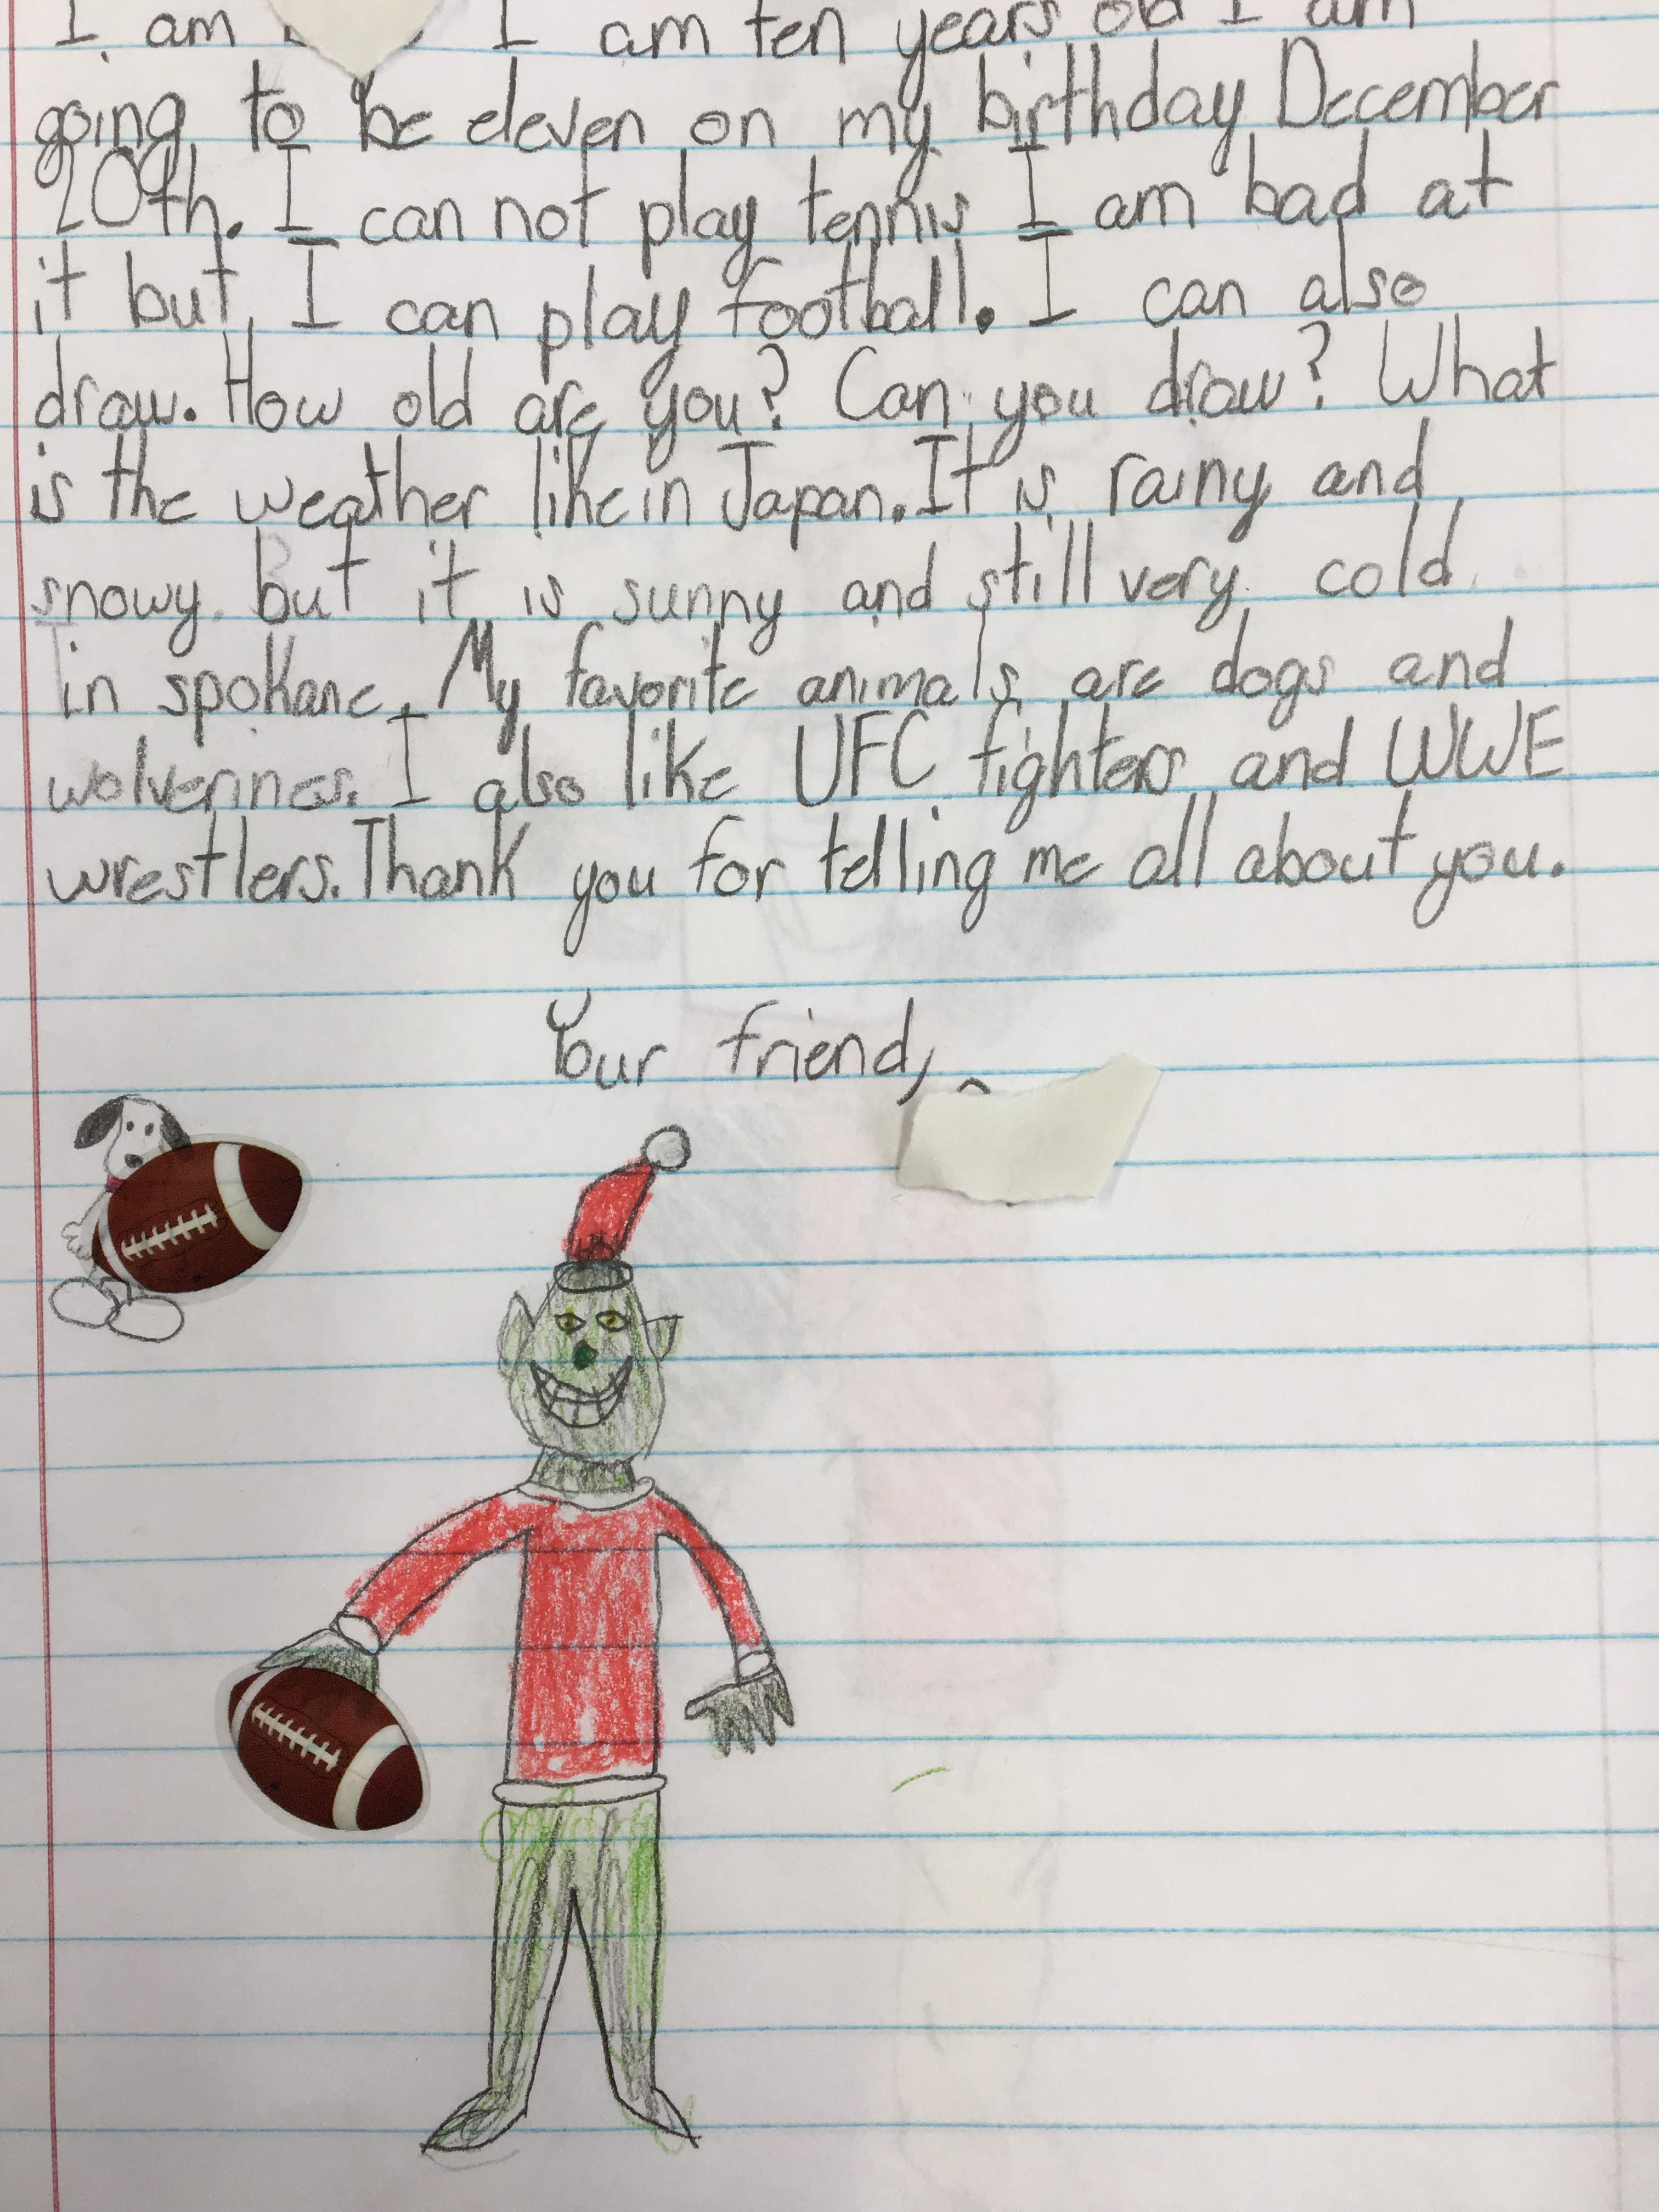 I am I am ten years old I am
going to be eleven on my birthday December
20th. I can not play tennis I am bad at
it but I can play football. I can also
draw. How old are you? Can you draw? What
is the weather like in Japan. It is rainy and
snowy but it is sunny and still very cold
in spokane. My favorite animals are dogs and
wolverines. I also like UFC fighters and WWE
wrestlers. Thank you for telling me all about you.
Your friend,